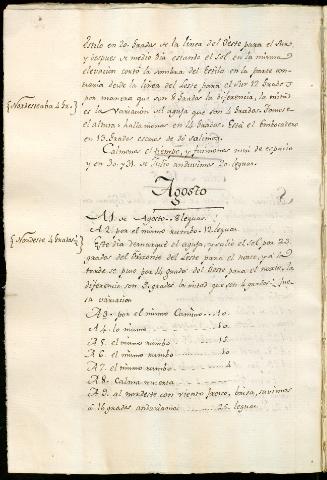 Estilo en 20. Grados de la linea del Oeste para el Sur,
y despues de medio dia estando el Sol en la misma
elevacion cortó la sombra del Estilo en la parte con-
traria desde la linea del leste para el sur 12 Grados
{Nordesteaba 4 Gs.} por manera que son 8 Grados la diferencia, la mitad
es la Variación del aguja que son 4 Grados. Tomé
el altura, halla menos en 14 Grados. Está el embocadero
en 13 Grados escasos de
Calmones el tiempo, y fuimonos mui de espacio
y en 30. y 31. de Julio anduvimos 20. leguas.
Agosto
A 1. de Agosto.. 8 leguas.
{Nordeste 4 grados} A 2. por el mismo rumbo.. 12. leguas.
Este dia demarqué el aguja, y salió el Sol por 22.
grados del Orizonte del Leste para el norte, y a la
tarde se puso por 14 grados del Oeste para el norte, la
diferencia son 8. grados la mitad que son 4 grados fue
sa variacion
A 3. por el mismo Camino... 10.
A 4. lo mismo ... 10.
A 5. el mismo rumbo ... 15.
A 6. el mismo rumbo ... 10
A 7. el mismo rumbo ... 4
A 8. Calma muerta
A 9. al nordeste con viento fresco, brisa, subimos
á 16 grados anduvimos ... 25. leguas.